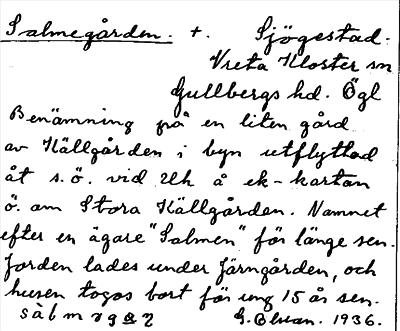 Salmegården. +. Sjögestad.
Vreta Kloster sn
Gullbergs hd. Ögl
Benämning på en liten gård
av Källgården i byn utflyttad
åt s.ö. vid Uh å ek-kartan
ö. om Stora Källgården. Namnet
efter en ägare "Salmen" för länge sen.
Jorden lades under Järngården, och
husen togos bort för ung 15 år sen.
1936.